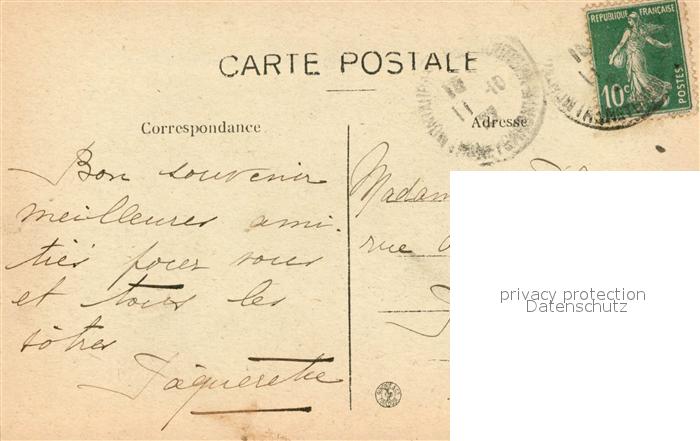 CARTE POSTALE
REPUBLIQUE FRANÇAISE
10c
POSTES
Correspondance
Adresse
Bon souvenir
meilleures ami-
tiés pour vous
et tous les
vôtres
Pâquerette
Madam
rue
privacy protection
Datenschutz